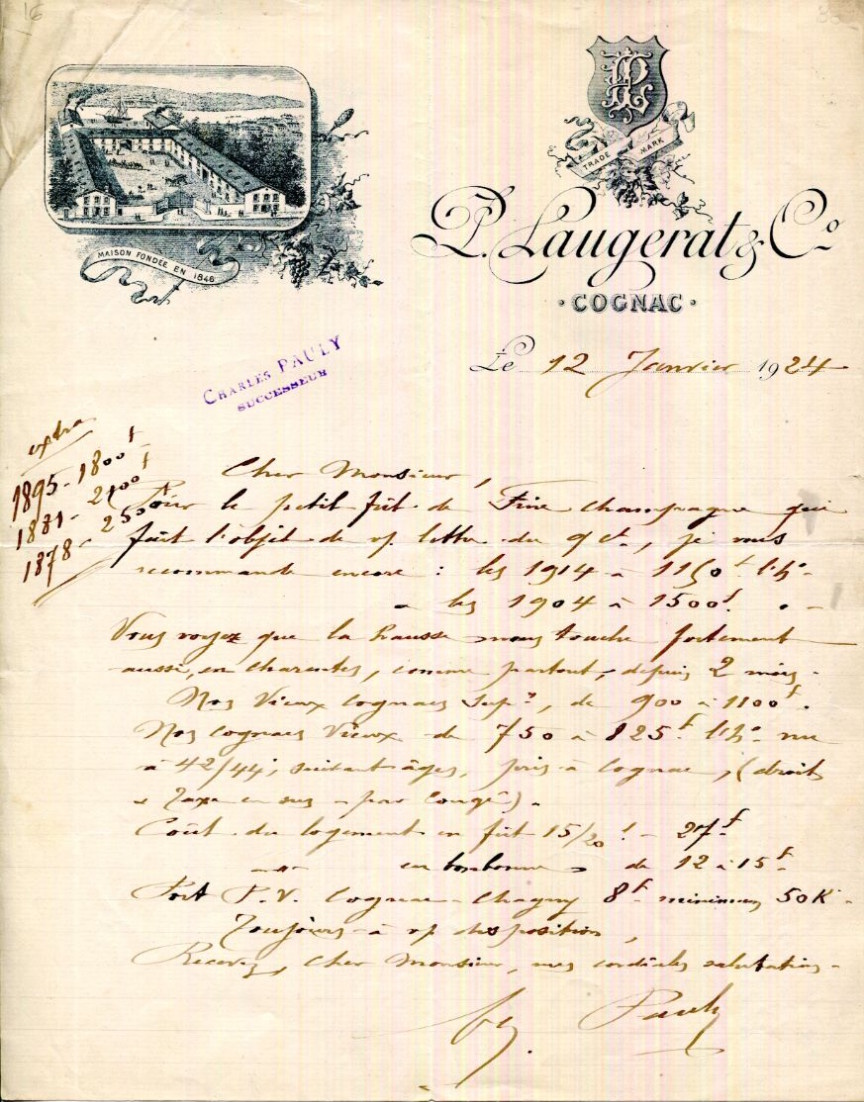 16
TRADE MARK
MAISON FONDÉE EN 1846
P. Laugerat & Co
· COGNAC ·
Le 12 Janvier 1924
CHARLES PAULY
SUCCESSEUR
extra
1895 - 1800 f
1881 - 2100 f
1878 - 2500
Cher Monsieur,
Pour le petit fût de Fine champagne qui
fait l'objet de v/ lettre du 9 ct, je vous
recommande encore : les 1914 à 1150 f l'ho
" les 1904 à 1500 f. " -
Vous voyez que la hausse nous touche fortement
aussi, en charentes, comme partout, depuis 2 mois.
Nos Vieux cognacs Supr, de 900 à 1100 f.
Nos cognacs Vieux de 750 à 825 f l'ho nu
à 42/44, suivant âges, pris à Cognac, (droits
& Taxe en sus - par congé).
Coût du logement en fût 15/20 l - 27 f
en bonbonnes de 12 à 15 f
Port P.V. Cognac - Chagny 8 f minimum 50 K -
Toujours à v/ disposition,
Recevez, Cher Monsieur, mes cordiales salutations -
Ch. Pauly